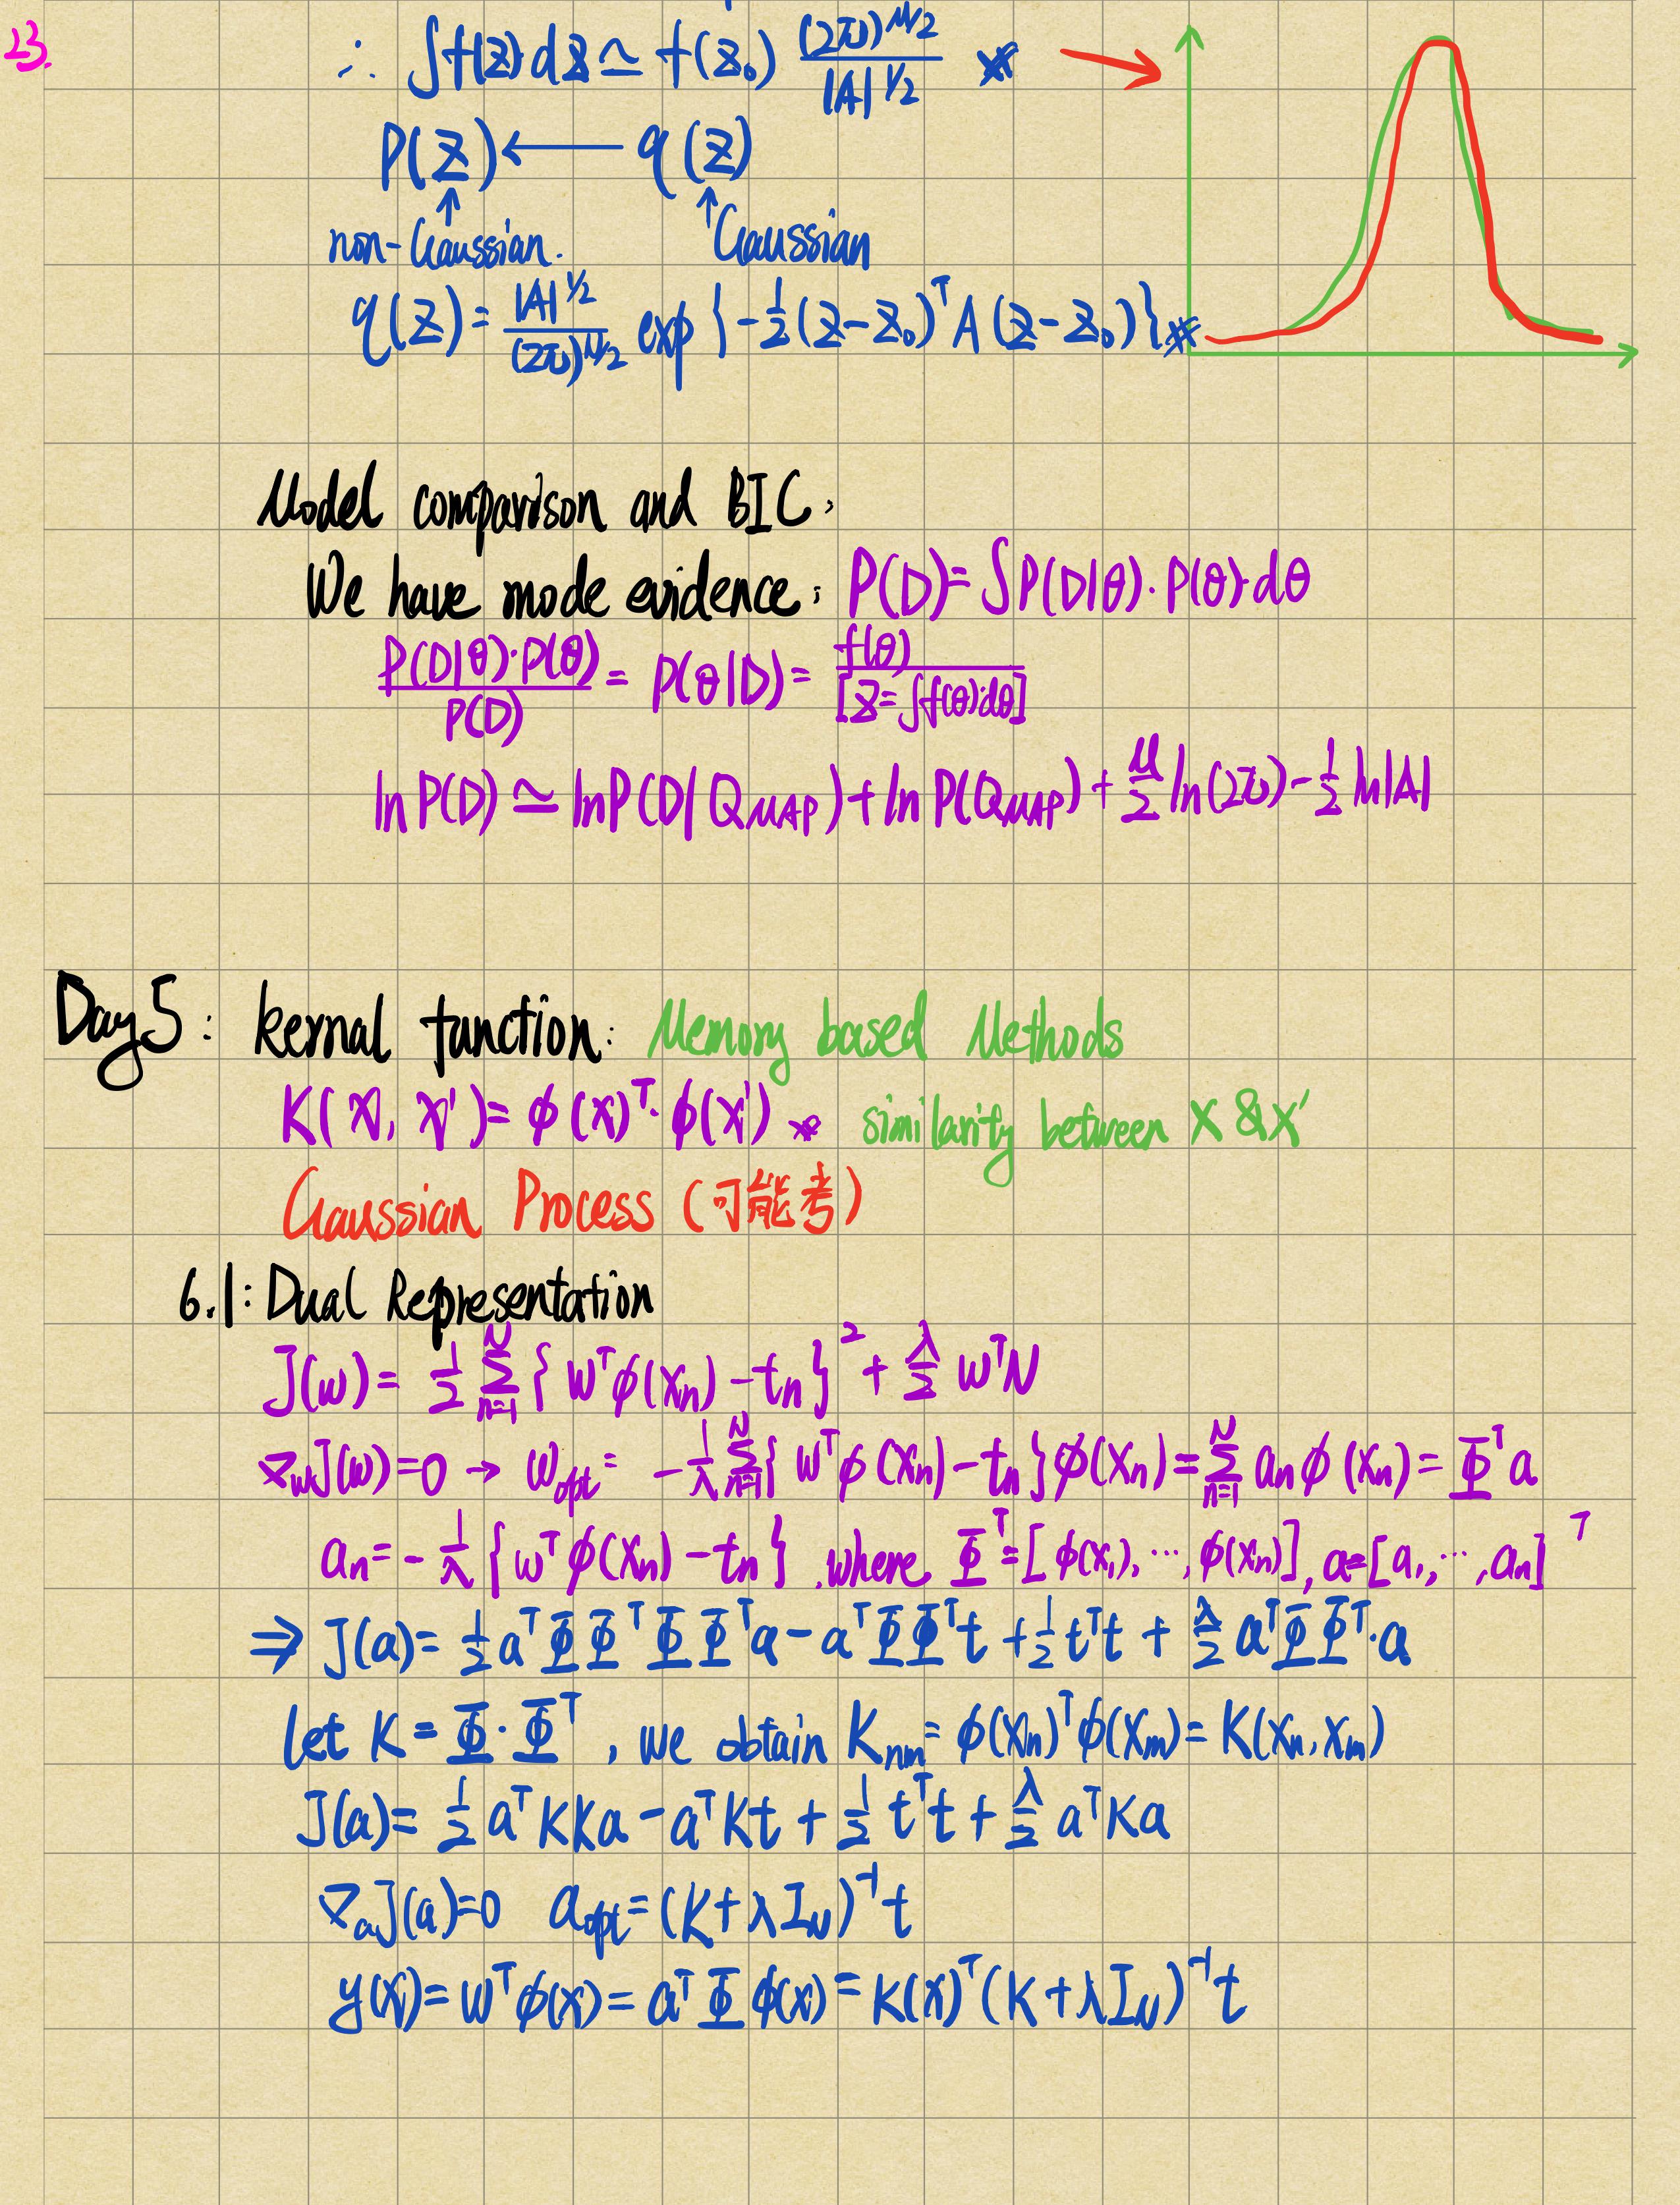 23.
∴ ∫f(z)dz ≃ f(z₀) (2π)^{M/2} / |A|^{1/2} ※
P(z) ← q(z)
↑ ↑
non-Gaussian. Gaussian
q(z) = |A|^{1/2} / (2π)^{M/2} exp{-1/2 (z-z₀)ᵀ A (z-z₀)} ※
Model comparison and BIC:
We have mode evidence: P(D) = ∫P(D|θ)·P(θ)·dθ
P(D|θ)·P(θ) / P(D) = P(θ|D) = f(θ) / [Z = ∫f(θ)dθ]
ln P(D) ≃ ln P(D|Q_MAP) + ln P(Q_MAP) + M/2 ln(2π) - 1/2 ln|A|
Day5: kernal function: Memory based Methods
K(x, x') = φ(x)ᵀ·φ(x') ※ similarity between x & x'
Gaussian Process (可能考)
6.1: Dual Representation
J(w) = 1/2 Σ_{n=1}^{N} {wᵀφ(xₙ) - tₙ}² + λ/2 wᵀw
∇_w J(w) = 0 → w_opt = -1/λ Σ_{n=1}^{N} {wᵀφ(xₙ) - tₙ}φ(xₙ) = Σ_{n=1}^{N} aₙφ(xₙ) = Φᵀa
aₙ = -1/λ {wᵀφ(xₙ) - tₙ}, where Φᵀ = [φ(x₁), ⋯, φ(xₙ)], a = [a₁, ⋯, aₙ]ᵀ
⇒ J(a) = 1/2 aᵀΦΦᵀΦΦᵀa - aᵀΦΦᵀt + 1/2 tᵀt + λ/2 aᵀΦΦᵀ·a
let K = Φ·Φᵀ, we obtain K_{nm} = φ(xₙ)ᵀφ(xₘ) = K(xₙ, xₘ)
J(a) = 1/2 aᵀKKa - aᵀKt + 1/2 tᵀt + λ/2 aᵀKa
∇ₐJ(a) = 0 a_opt = (K + λI_N)⁻¹t
y(x) = wᵀφ(x) = aᵀΦφ(x) = K(x)ᵀ(K + λI_N)⁻¹t